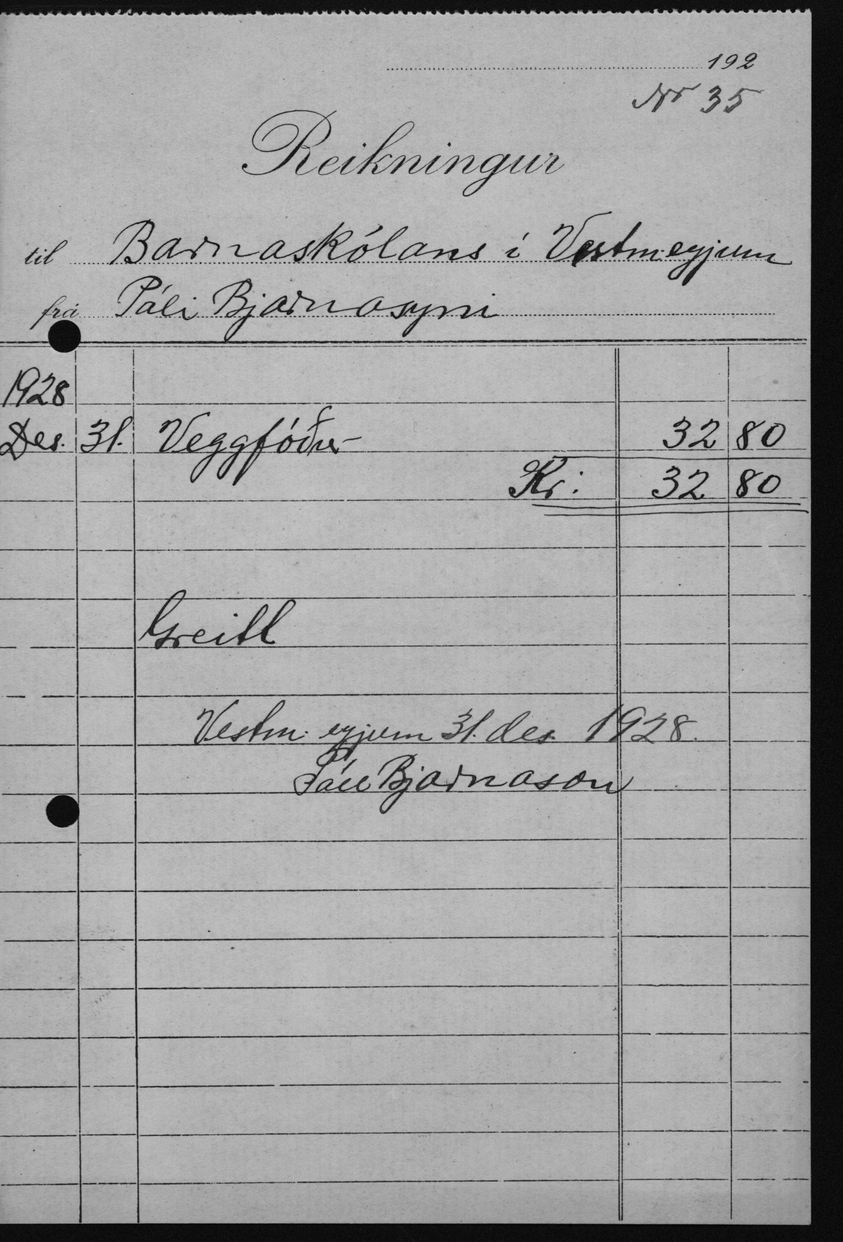 192
Nr 35
Reikningur
til Barnaskólans í Vestm.eyjum
frá Páli Bjarnasyni
1928
Des. 31. Veggfóður 32 80
Kr: 32 80
Greitt
Vestm. eyjum 31. des. 1928.
Páll Bjarnason